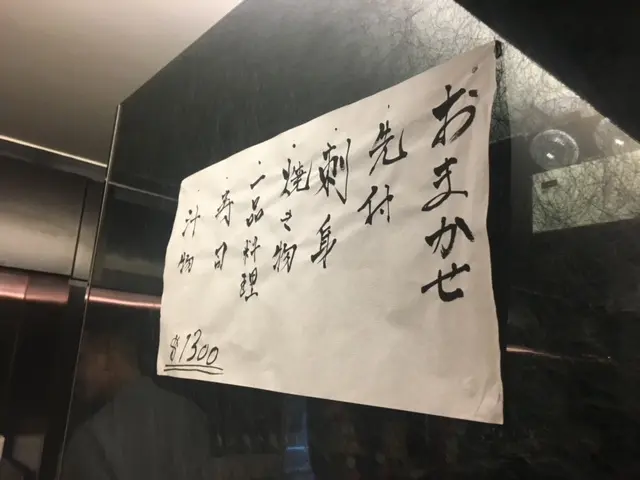 おまかせ
・先付
・刺身
・焼き物
・一品料理
・寿司
・汁物
$1300